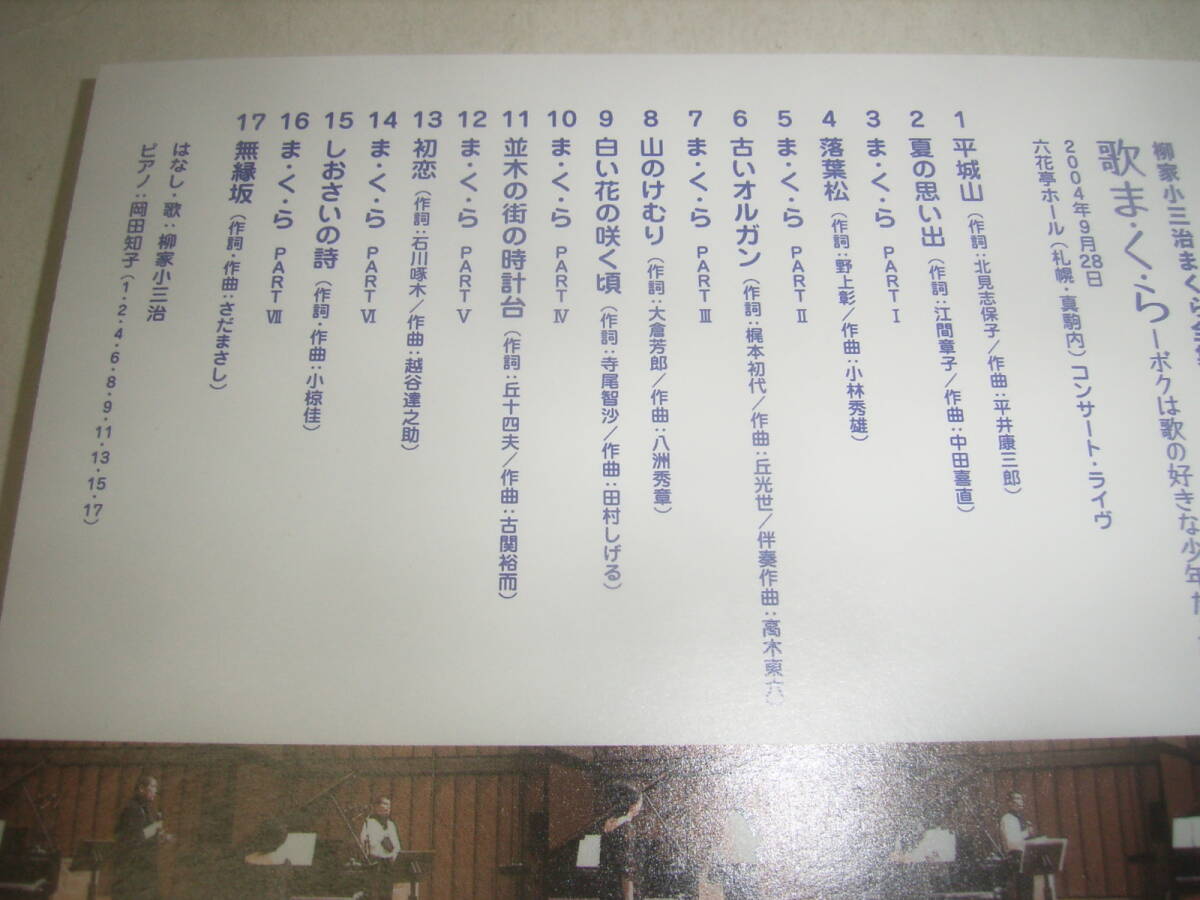 柳家小三治まくら
歌ま・く・らーボクは歌の好きな少年
2004年9月28日
六花亭ホール（札幌・真駒内）コンサート・ライヴ
1 平城山（作詞：北見志保子／作曲：平井康三郎）
2 夏の思い出（作詞：江間章子／作曲：中田喜直）
3 ま・く・ら PART Ⅰ
4 落葉松（作詞：野上彰／作曲：小林秀雄）
5 ま・く・ら PART Ⅱ
6 古いオルガン（作詞：梶本初代／作曲：丘光世／伴奏作曲：高木東六）
7 ま・く・ら PART Ⅲ
8 山のけむり（作詞：大倉芳郎／作曲：八洲秀章）
9 白い花の咲く頃（作詞：寺尾智沙／作曲：田村しげる）
10 ま・く・ら PART Ⅳ
11 並木の街の時計台（作詞：丘十四夫／作曲：古関裕而）
12 ま・く・ら PART Ⅴ
13 初恋（作詞：石川啄木／作曲：越谷達之助）
14 ま・く・ら PART Ⅵ
15 しおさいの詩（作詞・作曲：小椋佳）
16 ま・く・ら PART Ⅶ
17 無縁坂（作詞・作曲：さだまさし）
はなし・歌：柳家小三治
ピアノ：岡田知子（1・2・4・6・8・9・11・13・15・17）